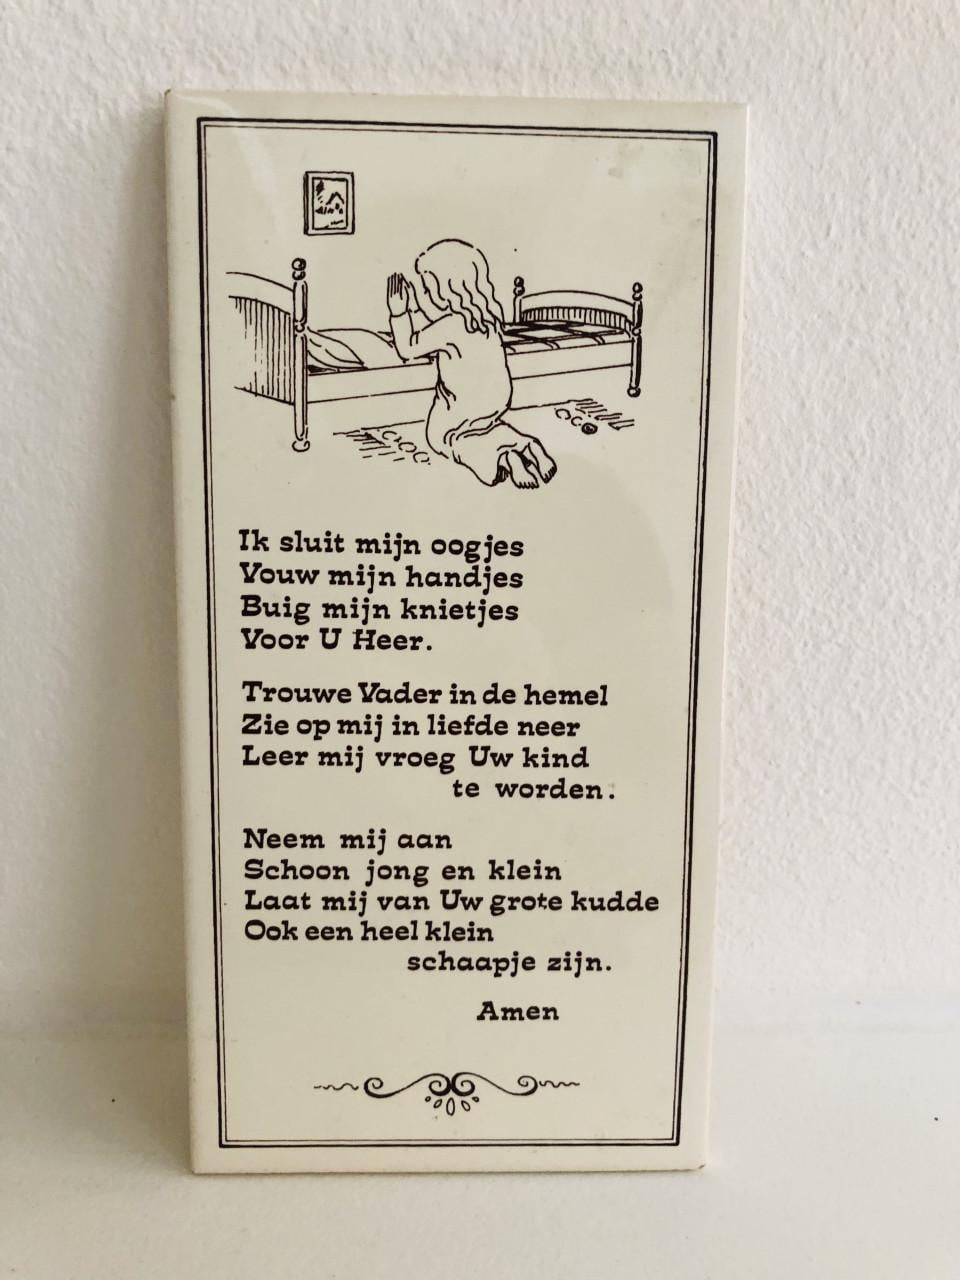 Ik sluit mijn oogjes
Vouw mijn handjes
Buig mijn knietjes
Voor U Heer.
Trouwe Vader in de hemel
Zie op mij in liefde neer
Leer mij vroeg Uw kind
te worden.
Neem mij aan
Schoon jong en klein
Laat mij van Uw grote kudde
Ook een heel klein
schaapje zijn.
Amen